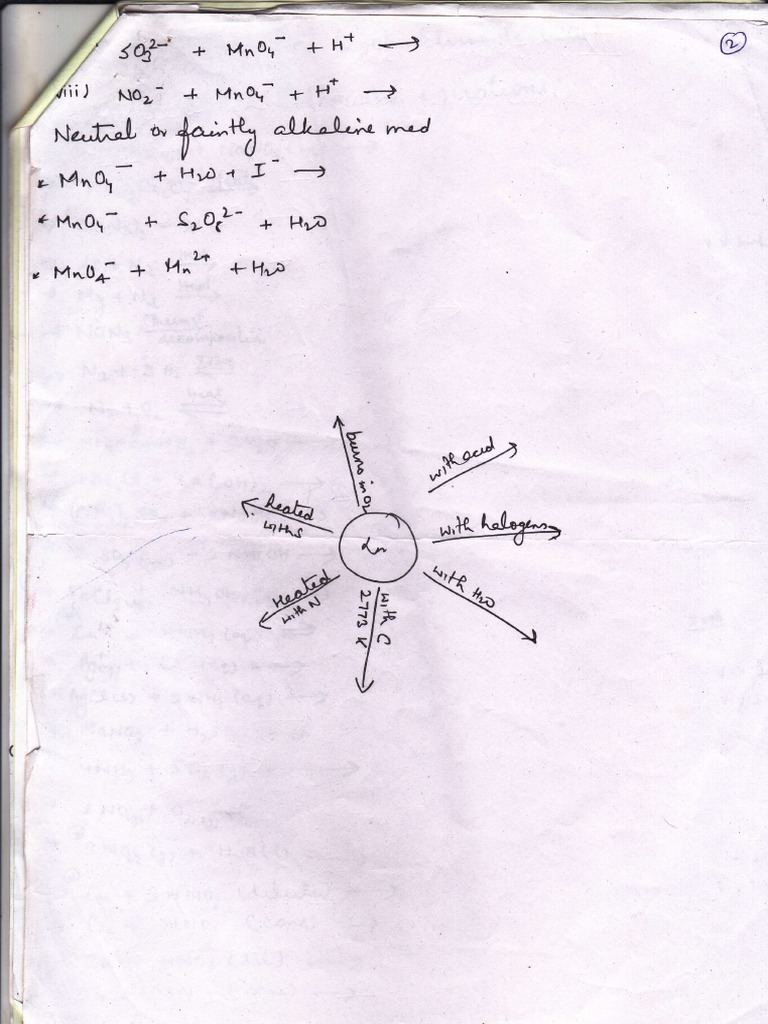 SO₃²⁻ + MnO₄⁻ + H⁺ ⟶
②
viii) NO₂⁻ + MnO₄⁻ + H⁺ ⟶
Neutral or faintly alkaline med
MnO₄⁻ + H₂O + I⁻ ⟶
MnO₄⁻ + S₂O₈²⁻ + H₂O
MnO₄⁻ + Mn²⁺ + H₂O
burns in O₂
with acid
heated
with S
with halogens
Ln
with H₂O
Heated
with N
with C
2773 K